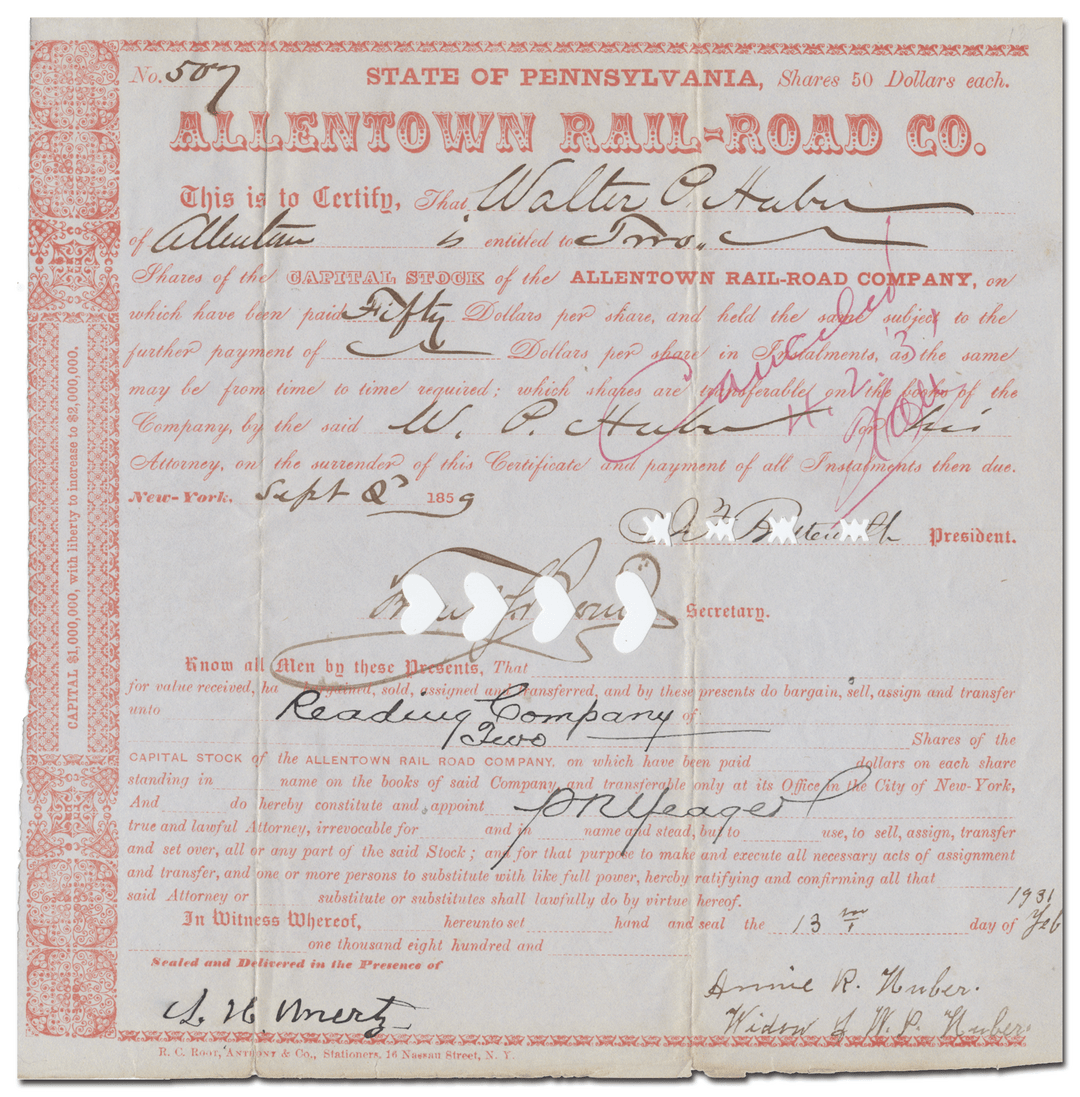 No. 507 STATE OF PENNSYLVANIA, Shares 50 Dollars each.
ALLENTOWN RAIL-ROAD CO.
This is to Certify, That Walter P. Huber
of Allentown is entitled to Two
Shares of the CAPITAL STOCK of the ALLENTOWN RAIL-ROAD COMPANY, on
which have been paid Fifty Dollars per share, and held the same subject to the
further payment of Dollars per share in Instalments, as the same
may be from time to time required; which shares are transferable on the books of the
Company, by the said W. P. Huber or his
Attorney, on the surrender of this Certificate and payment of all Instalments then due.
Cancelled
New-York. Sept 1859
President.
Secretary.
CAPITAL $1,000,000, with liberty to increase to $2,000,000.
Know all Men by these Presents, That
for value received, ha bargained, sold, assigned and transferred, and by these presents do bargain, sell, assign and transfer
unto Reading Company of
Two Shares of the
CAPITAL STOCK OF THE ALLENTOWN RAIL ROAD COMPANY, on which have been paid dollars on each share
standing in name on the books of said Company and transferable only at its Office in the City of New-York,
And do hereby constitute and appoint P R Yeager
true and lawful Attorney, irrevocable for and in name and stead, but to use, to sell, assign, transfer
and set over, all or any part of the said Stock; and for that purpose to make and execute all necessary acts of assignment
and transfer, and one or more persons to substitute with like full power, hereby ratifying and confirming all that
said Attorney or substitute or substitutes shall lawfully do by virtue hereof. 1931
In Witness Whereof, hereunto set hand and seal the 13 day of Feb
one thousand eight hundred and
Sealed and Delivered in the Presence of
Annie R. Huber.
Widow of W. P. Huber.
R. C. ROOT, ANTHONY & CO., STATIONERS, 16 NASSAU STREET, N. Y.